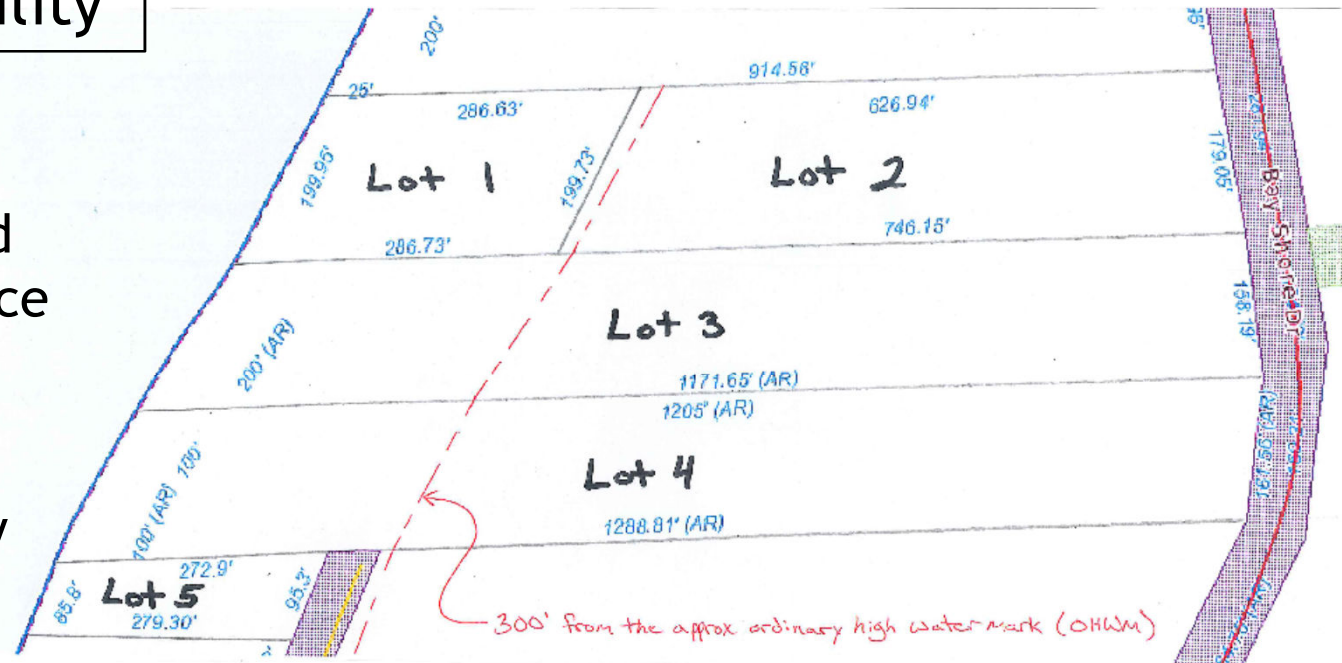 ility
200'
914.56'
25'
286.63'
626.94'
199.95'
Lot 1
199.73'
Lot 2
179.05'
Bay Shore Dr
d
286.73'
746.15'
ce
200' (AR)
Lot 3
158.19'
1171.65' (AR)
1205' (AR)
100' (AR) 100'
Lot 4
161.56 (AR)
y
1288.81' (AR)
272.9'
85.8'
Lot 5
95.3'
279.30'
300' from the approx ordinary high water mark (OHWM)